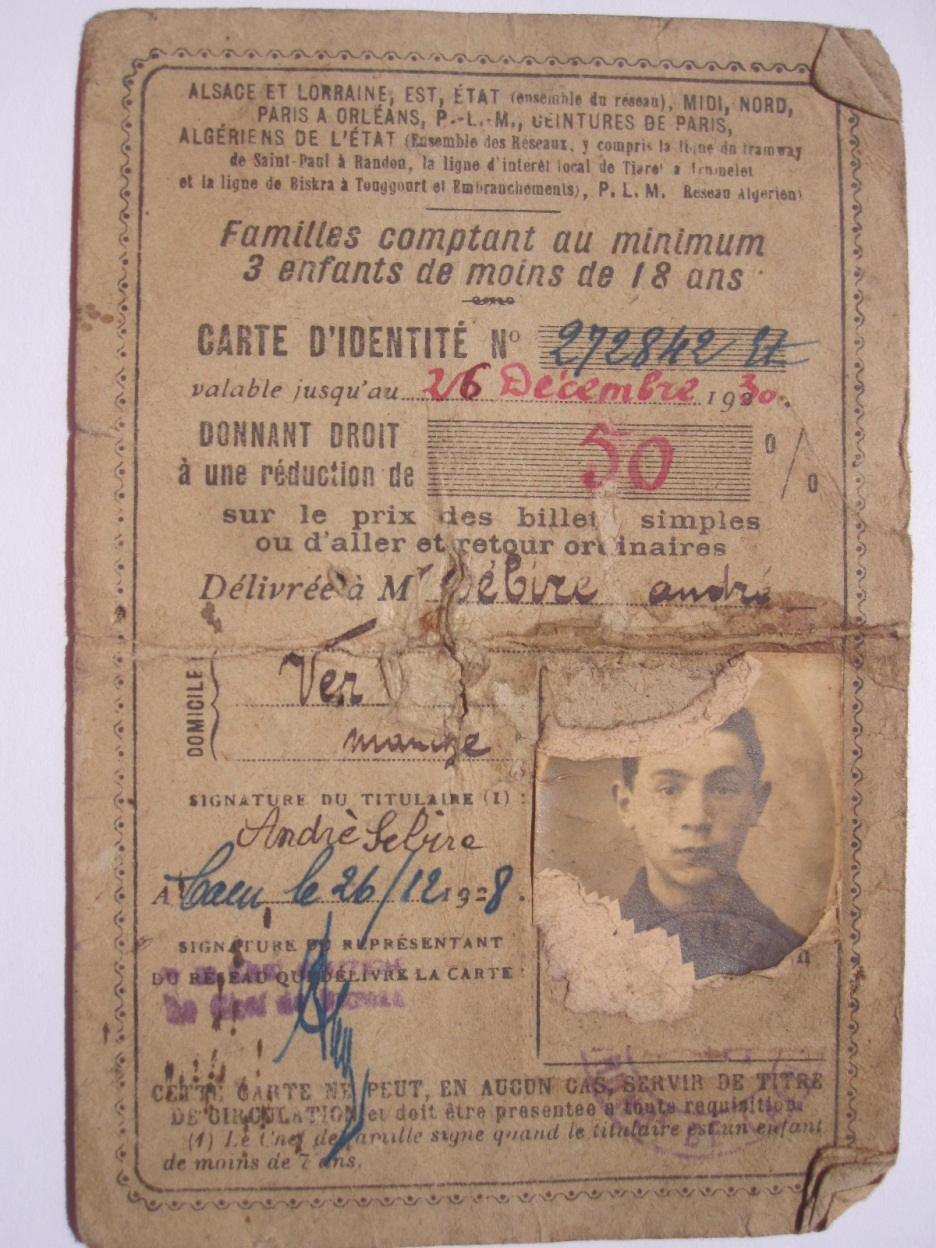 ALSACE ET LORRAINE, EST, ÉTAT (ensemble du réseau), MIDI, NORD,
PARIS A ORLÉANS, P.-L.-M., CEINTURES DE PARIS,
ALGÉRIENS DE L'ÉTAT (Ensemble des Réseaux, y compris la ligne du tramway
de Saint-Paul à Randon, la ligne d'intérêt local de Tiaret a
et la ligne de Biskra à Touggourt et Embranchements), P. L. M. Reseau Algerien)
Familles comptant au minimum
3 enfants de moins de 18 ans
CARTE D'IDENTITÉ No 272842 Et
valable jusqu'au 26 Décembre 1930.
DONNANT DROIT
à une réduction de 50 0/0
sur le prix des billet simples
ou d'aller et retour ordinaires
Délivrée à Mr Sébire andré
DOMICILE
Ver
manche
SIGNATURE DU TITULAIRE (1) :
Andrè Sebire
A Caen le 26/12 1928.
SIGNATURE DU REPRÉSENTANT
DU RÉSEAU QUI DÉLIVRE LA CARTE :
CETTE CARTE NE PEUT, EN AUCUN CAS, SERVIR DE TITRE
DE CIRCULATION et doit être presentee a toute requisition.
(1) Le Chef de famille signe quand le titulaire est un enfant
de moins de 7 ans.